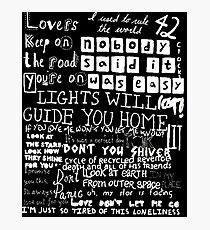 Lovers
I used to rule
the world
42
Keep on
nobody
the road
said it
CLOCKS
You're on
was easy
LIGHTS WILL
GUIDE YOU HOME
IF YOU LOVE ME WON'T YOU LET ME KNOW?
LOOK AT
THE STARS
LOOK HOW
THEY SHINE
FOR YOU
It was a perfect day
DON'T YOU SHIVER
cycle of recycled revenge
death and all of his friends
I promise
you this
LOOK AT EARTH
FROM OUTER SPACE
Always
Don't
Panic
oh, my star is fading
LOVE DON'T LET ME GO
I'M JUST SO TIRED OF THIS LONELINESS